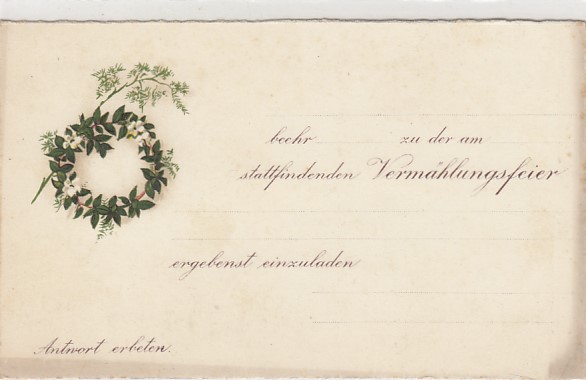 beehr zu der am
stattfindenden Vermählungsfeier
ergebenst einzuladen
Antwort erbeten.